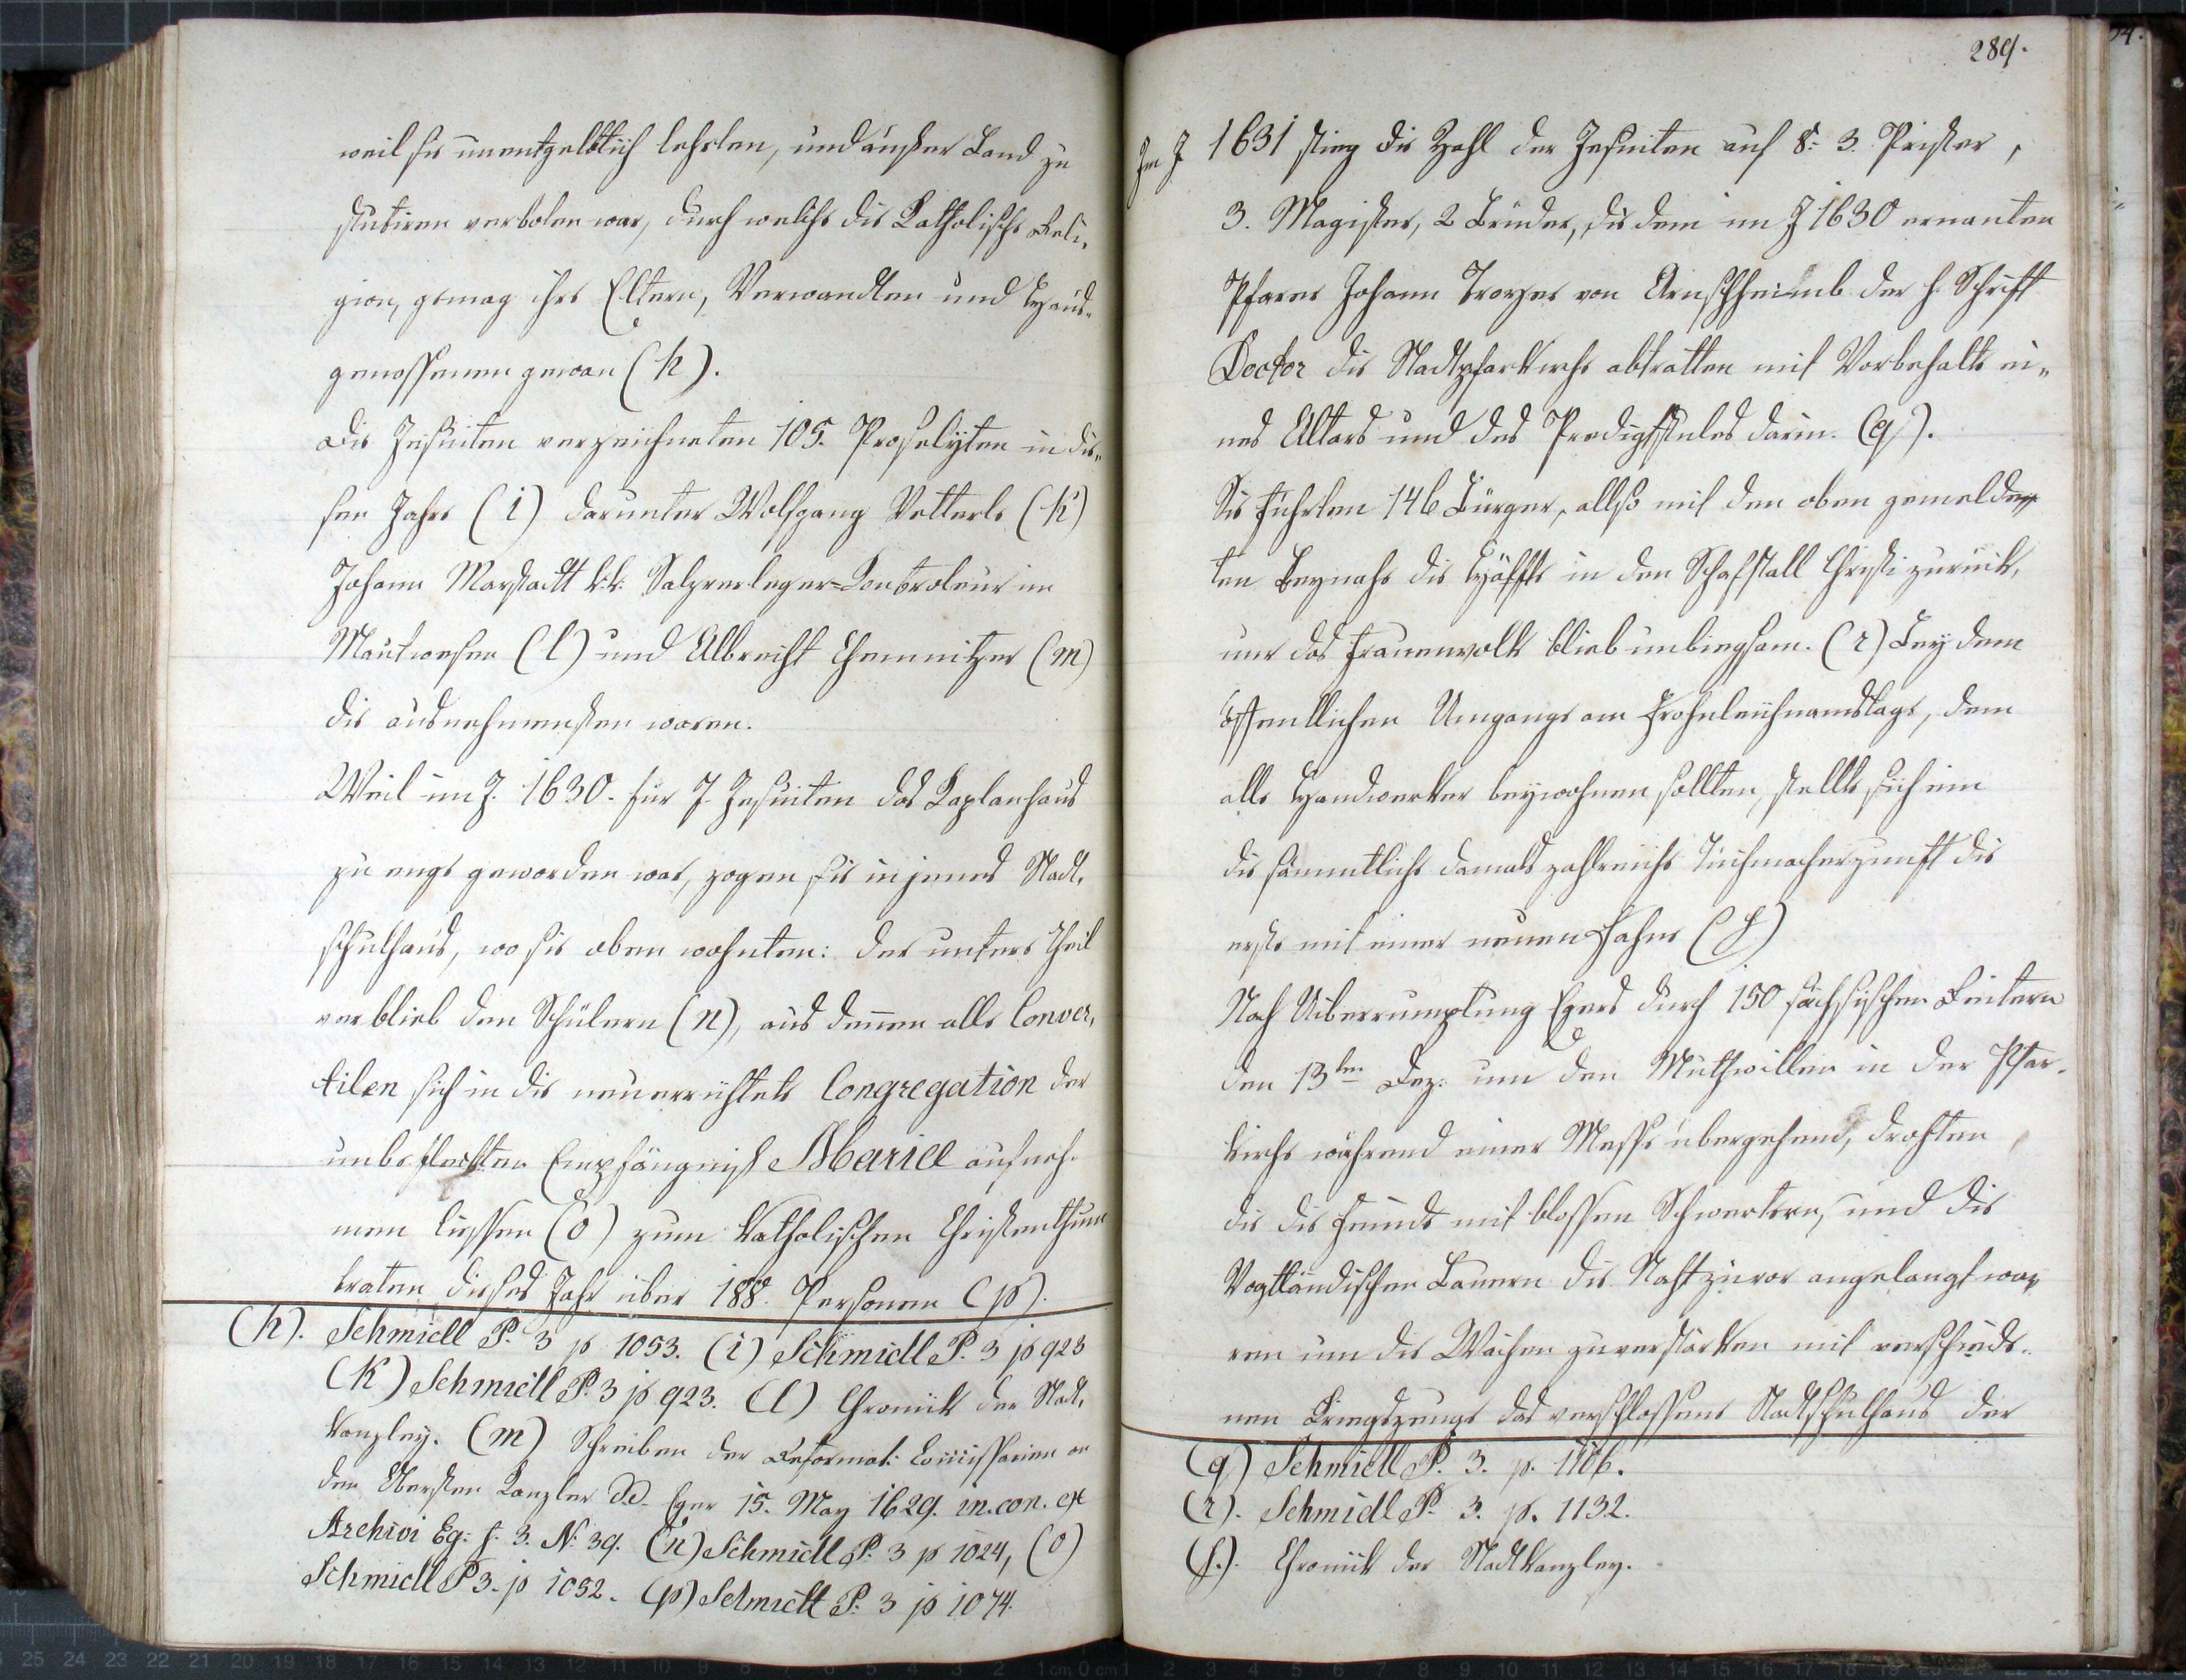 weil sie unentgeltlich lehrten, und außer Land zu
studiren verbolen war, durch welche die Katholische Reli-
gion, gemag ihre Eltern, Verwandten und Haus-
genossenen gewan (h).
Die Jesuiten verzeichneten 105. Proselyten in die-
sen Jahre (i) darunter Wolfgang Vetterle (k)
Johann Marstadt k.k. Salzverleger-Controleur im
Mautwesen (l) und Albrecht Chemnitzer (m)
die ausnehmensten waren.
Weil im J. 1630. für 7. Jesuiten das Kaplanhaus
zu enge geworden war, zogen sie in jenes Stadt-
schulhaus, wo sie oben wohnten: der untere Theil
verblieb den Schülern (n), aus denen alle Conver-
tilen sich in die neuerrichtete Congregation der
unbeflekten Empfängniß Mariæ aufneh-
men liessen (o) zum Katholischen Christenthum
traten dieses Jahr über 188. Personen (p).
(h). Schmidl P. 3 p 1053. (i) Schmidl P. 3 p 923
(k) Schmidl P. 3 p 923. (l) Chronik der Stadt-
kanzley. (m) Schreiben der Reformat: Commissarien an
den Obersten Kanzler d.d. Eger 15. May 1629. in. con. ex
Archivi Eg: f. 3. N. 39. (n) Schmidl P. 3 p 1024, (o)
Schmidl P 3. p 1052. (p) Schmidt P. 3 p 1074.
289.
Im J 1631 stieg die Zahl der Jesuiten auf 8: 3. Prister,
3. Magister, 2 Brüder, die dem im J 1630 ernanten
Pfarer Johann Troyer von der h. Schrift
Doctor die Stadtpfarkirche abtratten mit Vorbehalte ei-
nes Altars und des Predigtstules darin. (q).
Sie führten 146 Bürger, allso mit den oben gemelde
ten Beynahe die Hälffte in den Schafstall Christi zurück,
nur das Frauenvolk blieb unbiegsam. (r) Bey dem
öffentlichen Umgange am Frohnleichnamstage, dem
alle Handwerker beywohnen sollten, stellte sich ein
die sämmtliche damals zahlreiche Tuchmacherzunft die
erste mit einer neuen Fahne (s)
Nach Uiberrumplung Egers durch 150 sächsischen Reitern
den 13ten Dez: um den Muthwillen in der Pfar-
kirche während einer Messe übergehend, drohten
die die Feinde mit blossen Schwertern, und die
Vogtländischen Bauern die Nacht zuvor angelangt wa-
ren um die Wachen zuverstärken mit verschiede-
nen Kriegszeuge das verschlossene Stadtschulhaus der
(q) Schmidl P. 3. p. 1106.
(r). Schmidl P. 3. p. 1132.
(s.). Chronik der Stadtkanzley.